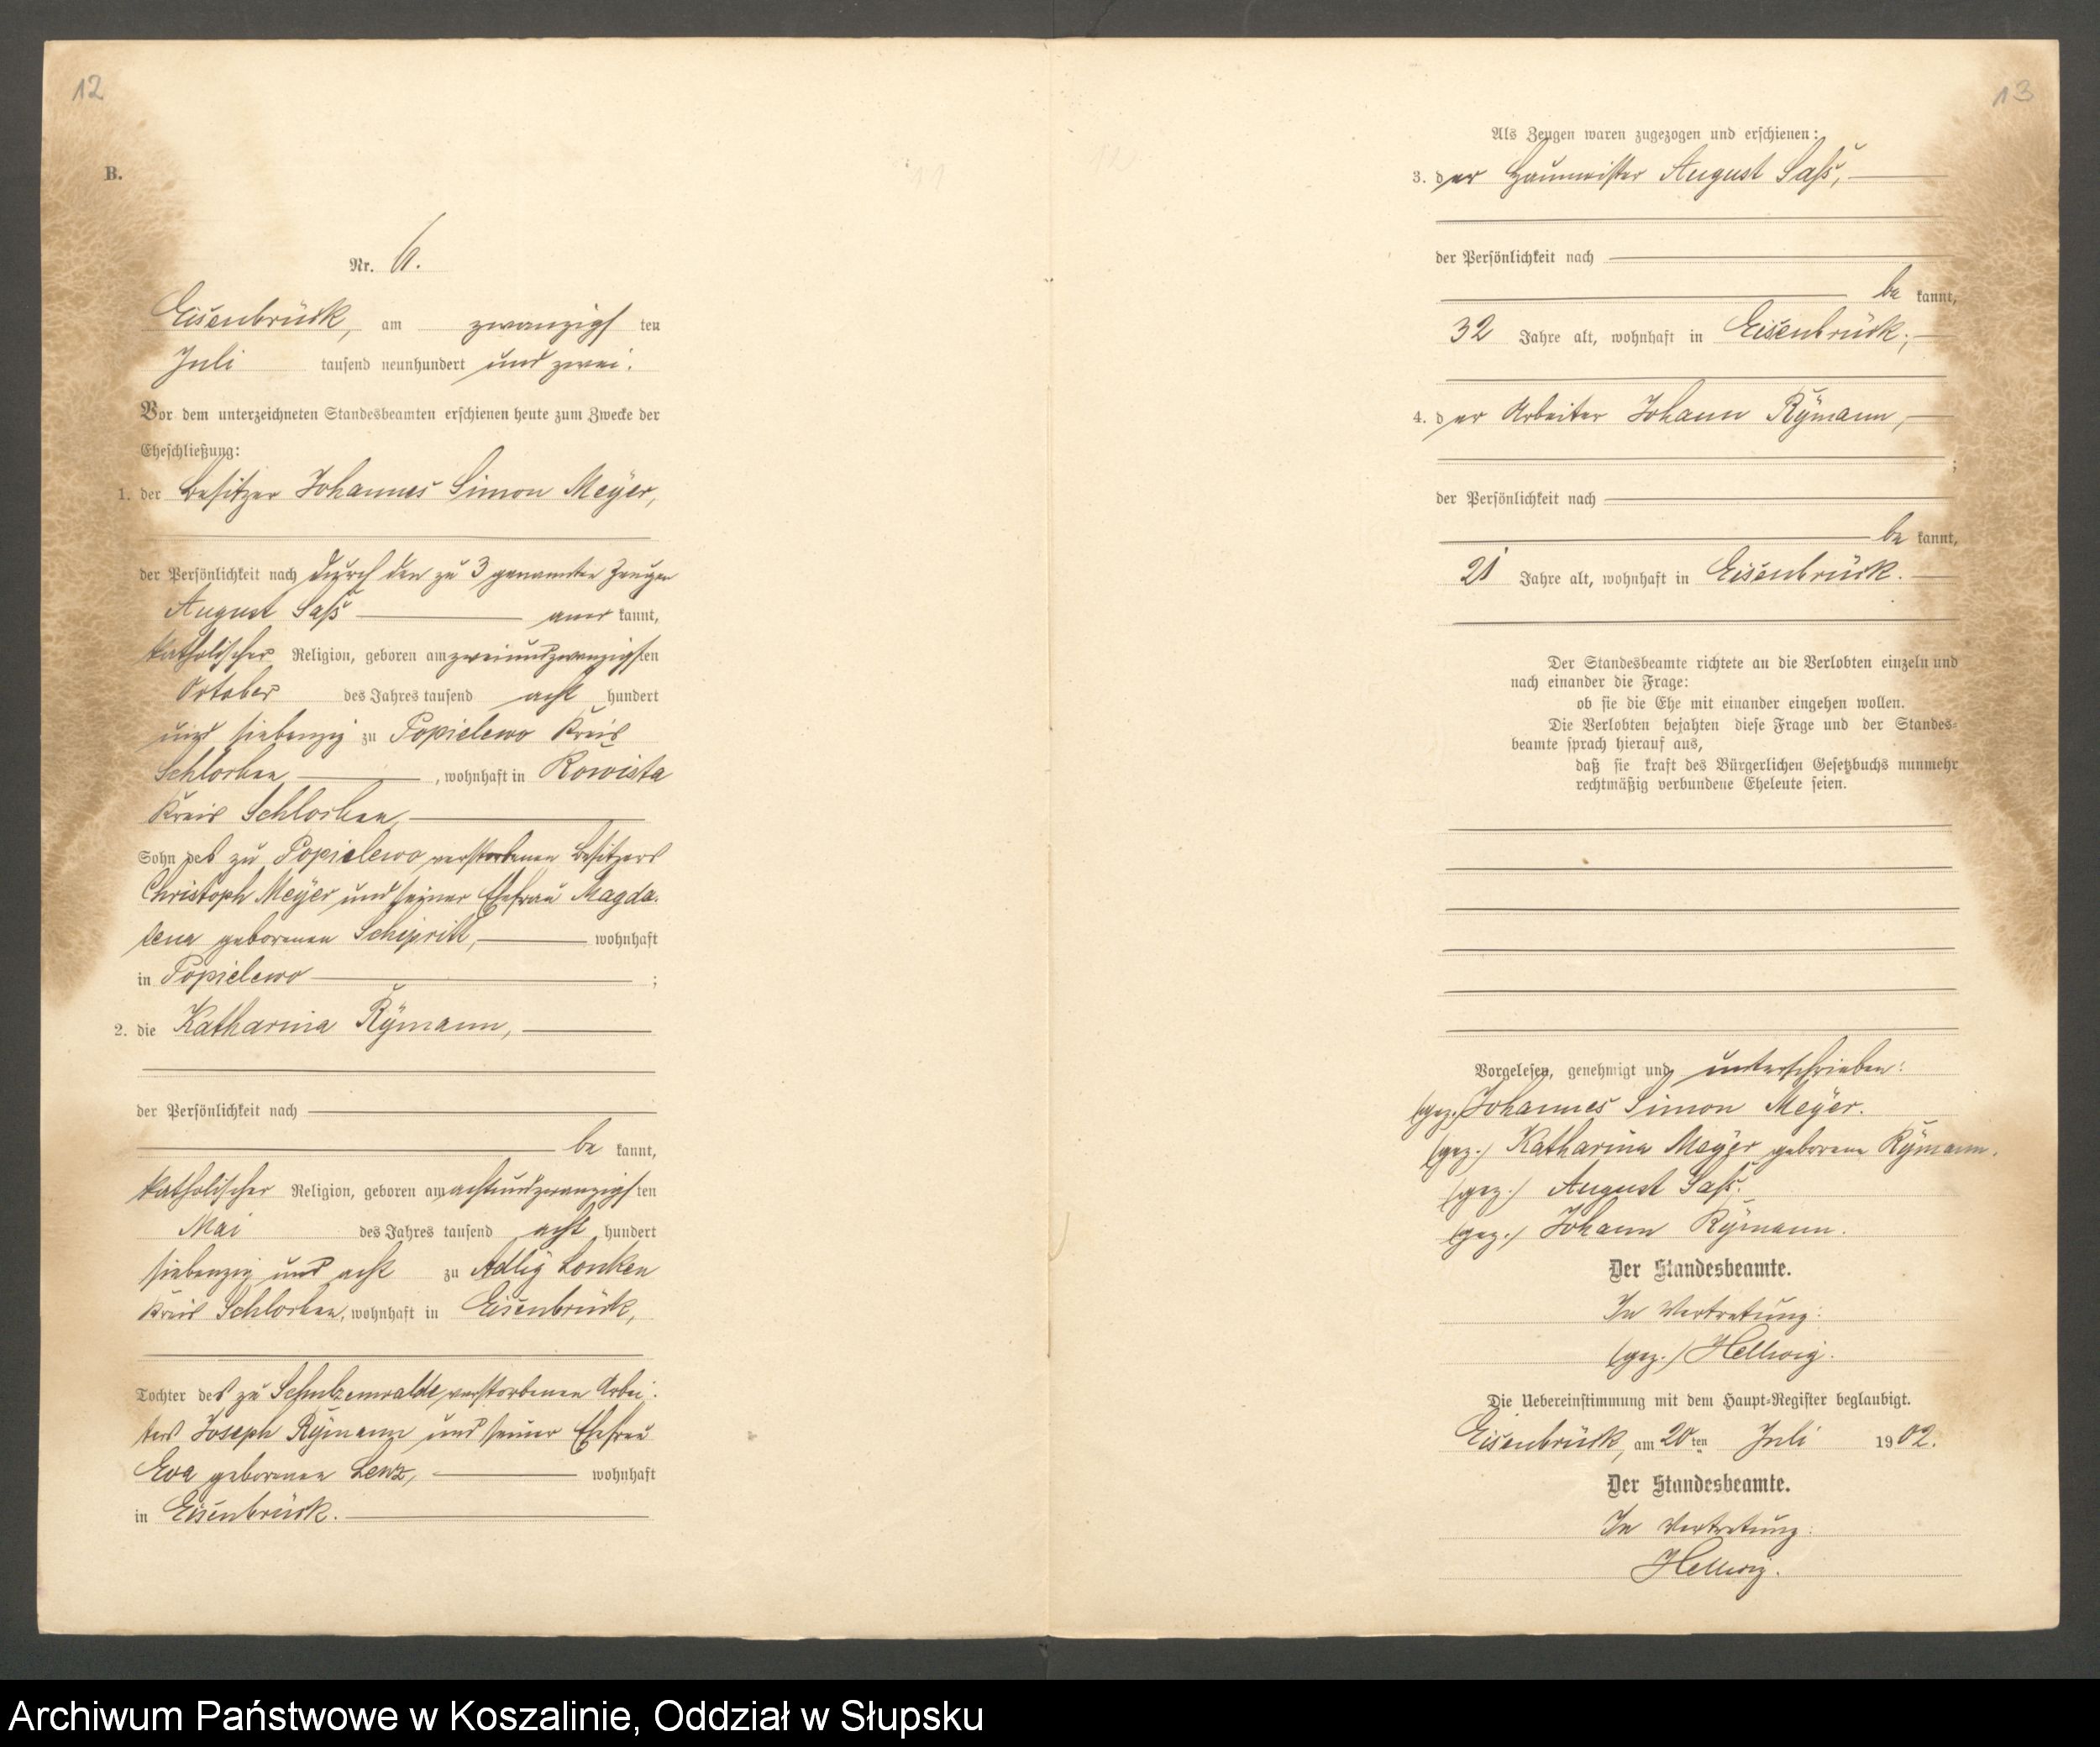 12
B.
Nr. 6.
Eisenbrück, am zwanzigsten
Juli tausend neunhundert und zwei.
Vor dem unterzeichneten Standesbeamten erschienen heute zum Zwecke der
Eheschließung:
1. der Besitzer Johannes Simon Meÿer,
der Persönlichkeit nach durch den zu 3 genannten Zeugen
August Saß aner kannt,
katholischer Religion, geboren am zweiundzwanzigsten
October des Jahres tausend acht hundert
und siebenzig zu Popielewo Kreis
Schlochau, wohnhaft in Rowista
Kreis Schlochau,
Sohn des zu Popielewo verstorbenen Besitzers
Christoph Meÿer und seiner Ehefrau Magda-
lena geborenen wohnhaft
in Popielewo ;
2. die Katharina Rÿmann,
der Persönlichkeit nach
be kannt,
katholischer Religion, geboren am achtundzwanzigsten
Mai des Jahres tausend acht hundert
siebenzig und acht zu Adlig Lonken
Kreis Schlochau, wohnhaft in Eisenbrück,
Tochter des zu Schulzenwalde verstorbenen Arbei-
ters Joseph Rÿmann und seiner Ehefrau
Eva geborenen Lenz, wohnhaft
in Eisenbrück.
13
Als Zeugen waren zugezogen und erschienen:
3. der Haumeister August Saß,
der Persönlichkeit nach
be kannt,
32 Jahre alt, wohnhaft in Eisenbrück;
4. der Arbeiter Johann Rÿmann,
;
der Persönlichkeit nach
be kannt,
21 Jahre alt, wohnhaft in Eisenbrück.
Der Standesbeamte richtete an die Verlobten einzeln und
nach einander die Frage:
ob sie die Ehe mit einander eingehen wollen.
Die Verlobten bejahten diese Frage und der Standes-
beamte sprach hierauf aus,
daß sie kraft des Bürgerlichen Gesetzbuchs nunmehr
rechtmäßig verbundene Eheleute seien.
Vorgelesen, genehmigt und unterschrieben:
(gez.) Johannes Simon Meÿer.
(gez.) Katharina Meÿer geborene Rÿmann.
(gez.) August Saß.
(gez.) Johann Rÿmann.
Der Standesbeamte.
In Vertretung:
(gez.) Hellwig.
Die Uebereinstimmung mit dem Haupt-Register beglaubigt.
Eisenbrück, am 20ten Juli 1902.
Der Standesbeamte.
In Vertretung:
Hellwig.
Archiwum Państwowe w Koszalinie, Oddział w Słupsku